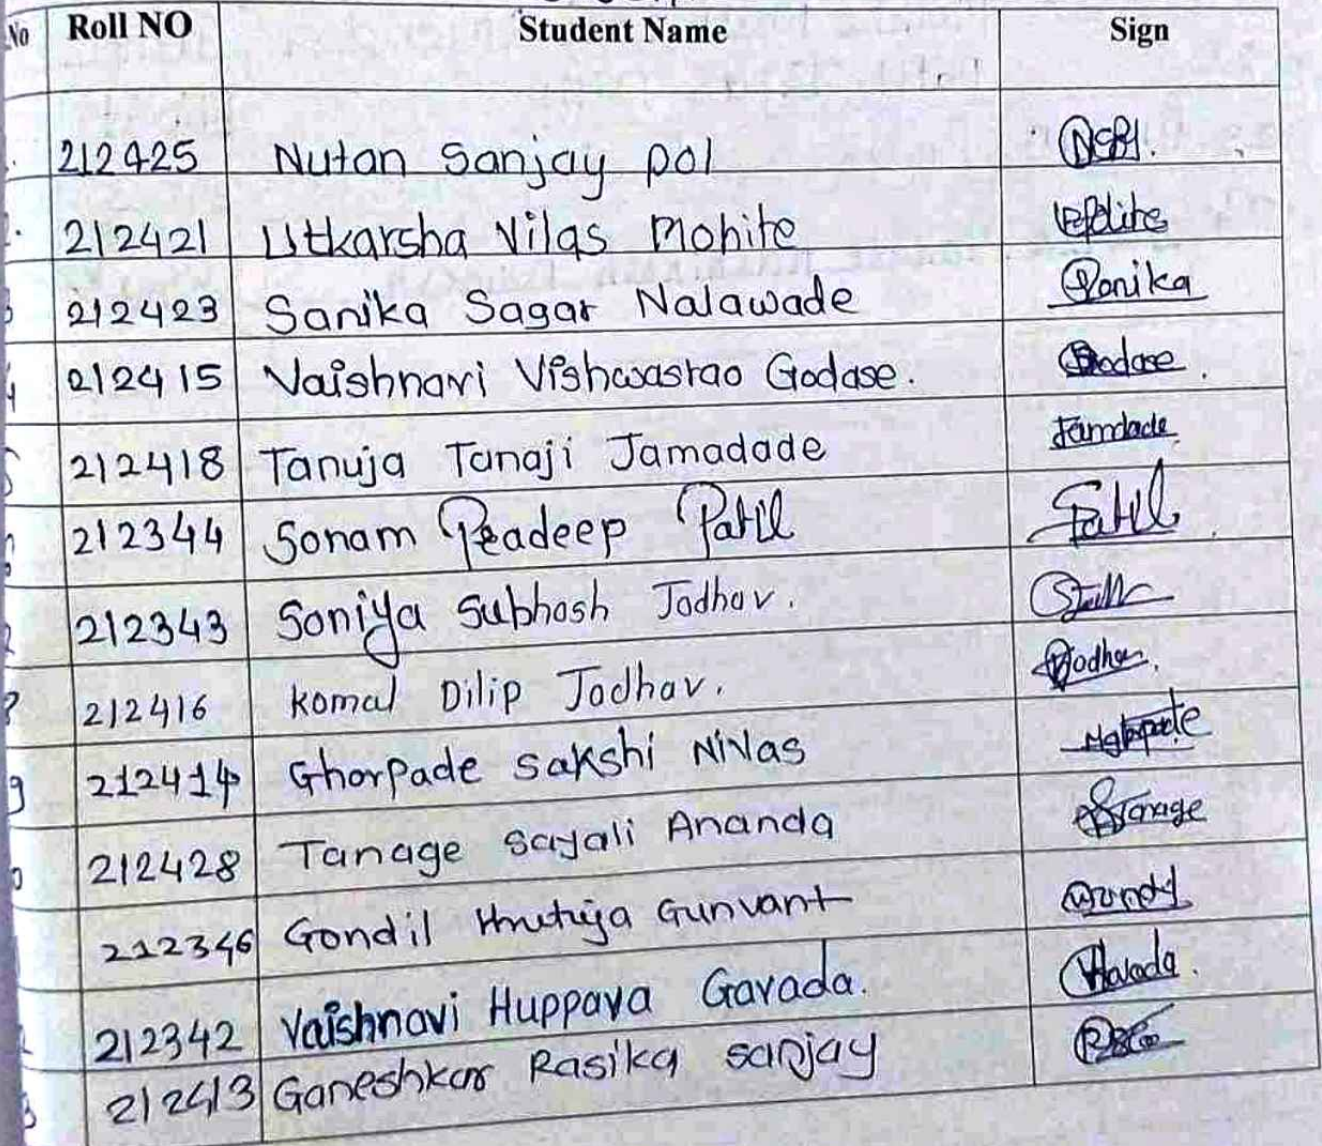 No Roll NO Student Name Sign
212425 Nutan Sanjay pol
212421 Utkarsha Vilas Mohite
212423 Sanika Sagar Nalawade Sanika
212415 Vaishnavi Vishwasrao Godase. Godase.
212418 Tanuja Tanaji Jamadade Jamdade
212344 Sonam Pradeep Patil Patil
212343 Soniya Subhash Jadhav.
212416 Komal Dilip Jadhav. Jadhav.
9 212414 Ghorpade Sakshi Nivas
212428 Tanage Sayali Ananda Tanage
212346 Gondil Gunvant
212342 Vaishnavi Huppava Gavada.
212413 Ganeshkar Rasika Sanjay